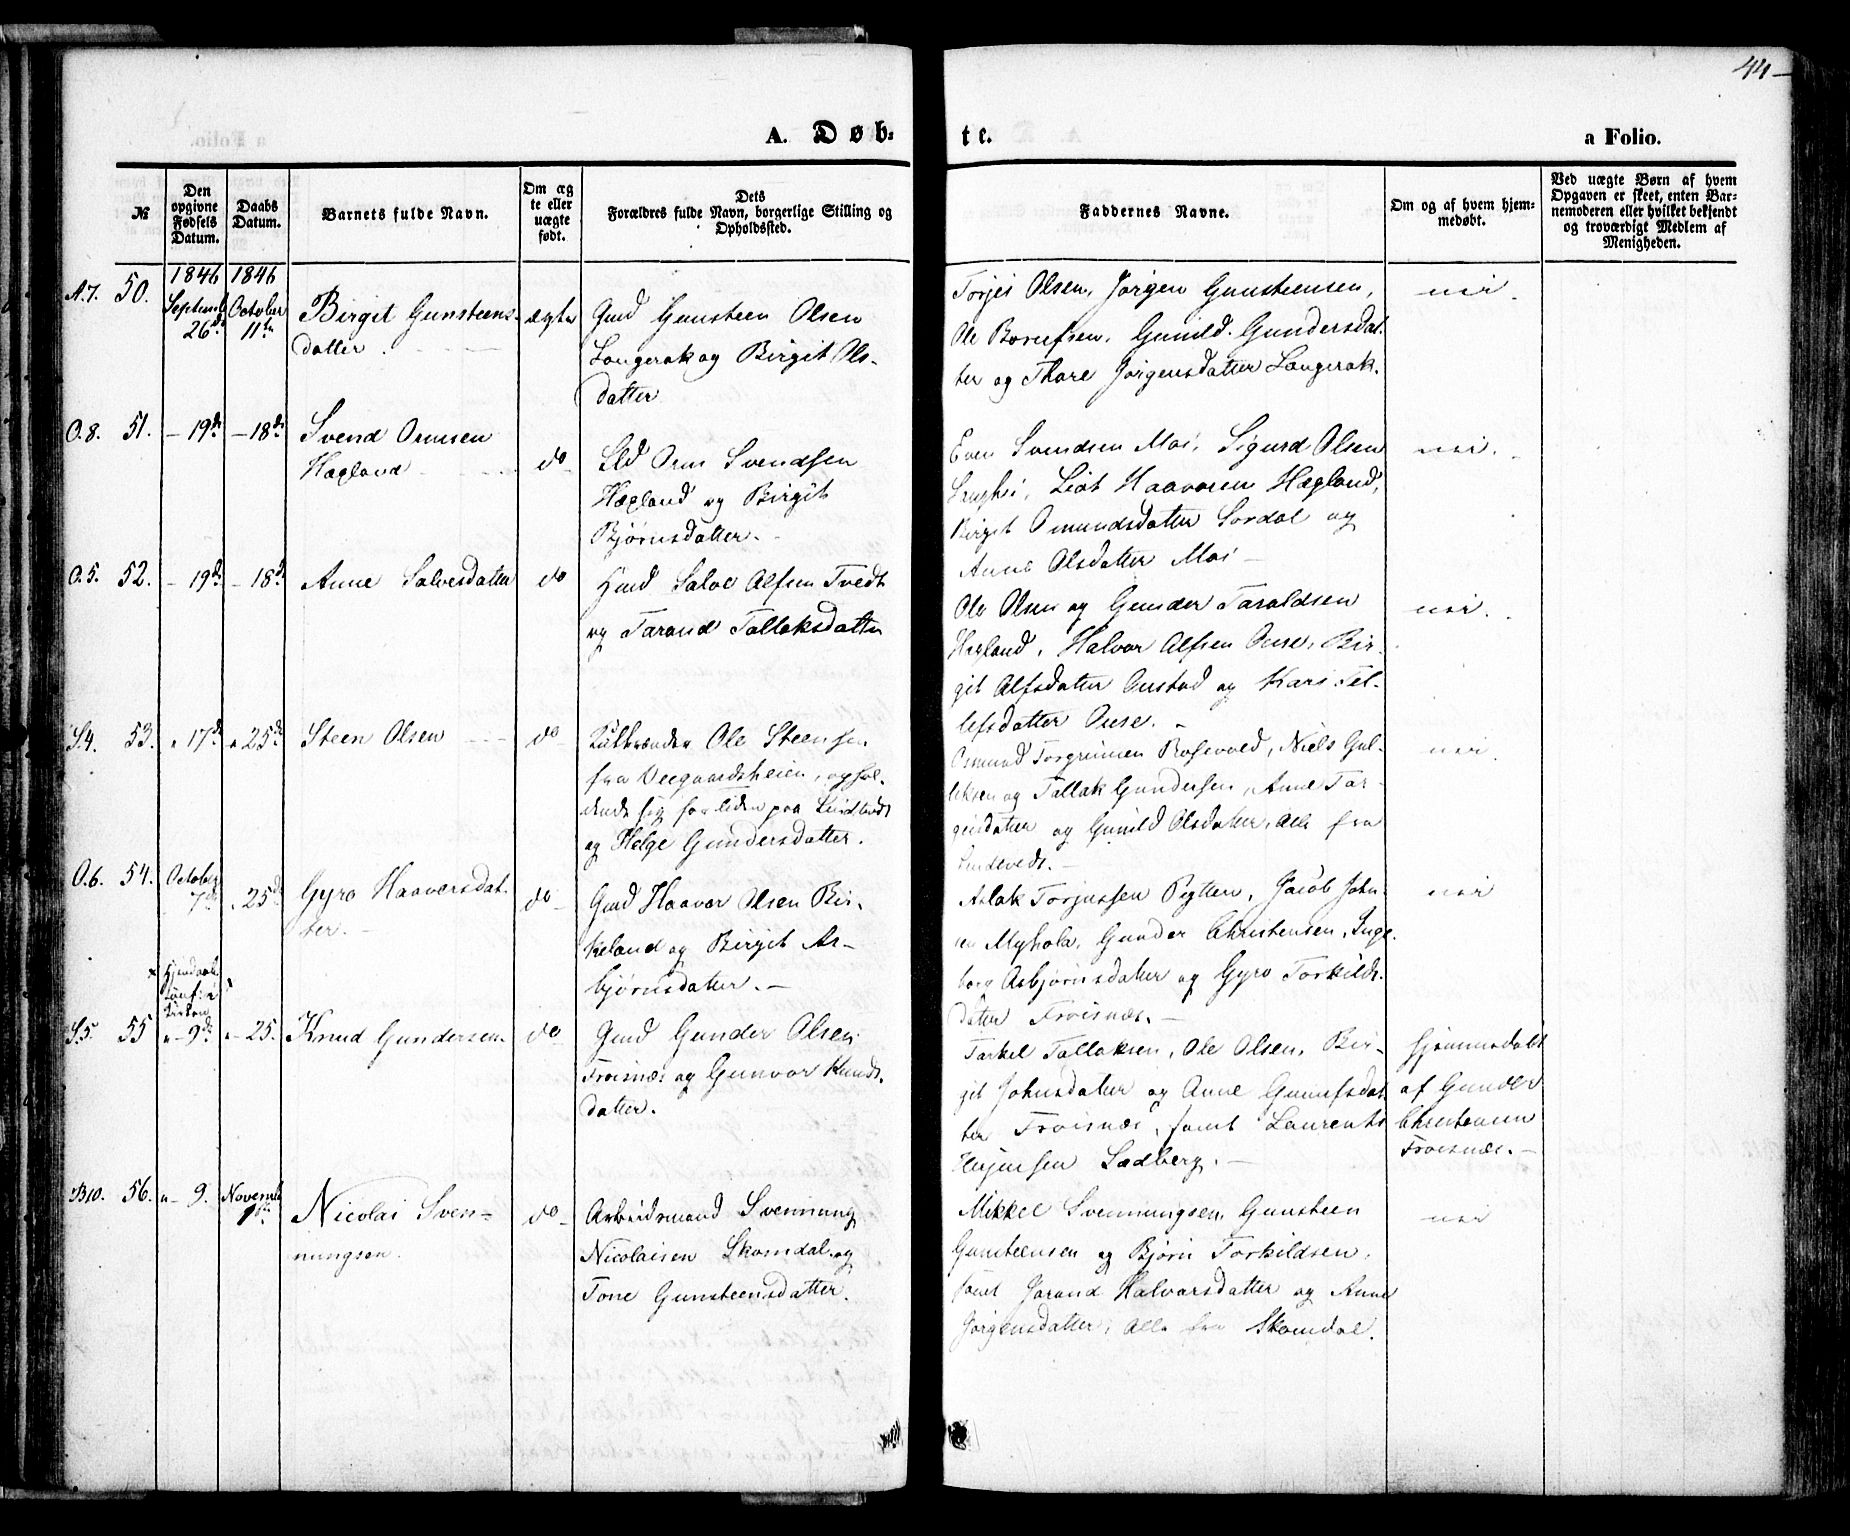 44
A. Døb-
te.
a Folio.
№
Den opgivne Fødsels Datum.
Daabs Datum.
Barnets fulde Navn.
Om ægte eller uægte født.
Dets Forældres fulde Navn, borgerlige Stilling og Opholdssted.
Faddernes Navne.
Om og af hvem hjemmedøbt.
Ved uægte Børn af hvem Opgaven er skeet, enten Barnemoderen eller hvilket bekjendt og troværdigt Medlem af Menigheden.
1846 1846
A.7. 50. Septemb 26d October 11te
Birgit Gunsteens-
datter.
ægte
Gmd Gunsteen Olsen
Langerak og Birgit Ols-
datter
Torjei Olsen, Jørgen Gunsteensen,
Ole Bornefsen, Gunild Gundersdat-
ter og Thore Jørgensdatter Langerak.
nei.
O.8. 51. - 19d - 18d
Svend Ormsen
Hægland
do
Lld Orm Svendsen
Hægland og Birgit
Bjørnsdatter.
Even Svendsen Moi, Sigurd Olsen
Liøt Haavoren Hægland,
Birgit Omundsdatter Sordal og
Anne Olsdatter Moi -
nei.
O.5. 52. - 19d - 18d
Anne Salvesdatter
do
Hmd Salve Alfsen Tvedt
og Tarand Tallaksdatter
Ole Olsen og Gunder Taraldsen
Hægland, Halvor Alfsen Ouse, Bir-
git Alfsdatter Oustad og Kari Tel-
lefsdatter Ouse. -
nei.
S.4. 53. " 17d " 25d
Steen Olsen
do
Ole Steensen
fra Veegaardsheien, ophol-
dende sig for tiden paa Lindtvedt
og Helge Gundersdatter.
Osmund Torgrimsen Rosevold, Niels Gul-
liksen og Tallak Gundersen, Anne Tar-
gesdatter og Gunild Olsdatter, alle fra
Lindtvedt. -
nei.
O.6. 54. October 7de " 25d
Gyro Haavorsdat-
ter. -
do
Gmd Haavor Olsen Bir-
keland og Birgit As-
bjørnsdatter. -
Aslak Torjussen Rygten, Jacob John-
sen Myhola, Gunder Christensen, Inge-
borg Asbjørnsdatter og Gyro Torkilds-
datter Froisnæs. -
nei
x Hjemdøbt
Conf: i
Kirken
S.5. 55 " - 9d " - 25.
Knud Gundersen
do
Gmd Gunder Olsen
Froisnæs og Gunvor Knuds-
datter.
Tarkel Tallaksen, Ole Olsen, Bir-
git Johnsdatter og Anne Gunufsdat-
ter Froisnæs, samt Laurents
Ladberg. -
hjemmedøbt
af Gunder
Christensen
Froisnæs. -
B10. 56. " - 9. Novemb 1ste
Nicolai Sven-
nungsen.
do
Arbeidsmand Svennung
Nicolaisen Skomdal og
Tone Gunsteensdatter.
Mikkel Svennungsen, Gunsteen
Gunsteensen og Bjørn Torkildsen,
samt Jorand Halvorsdatter og Anne
Jørgensdatter, alle fra Skomdal.
nei